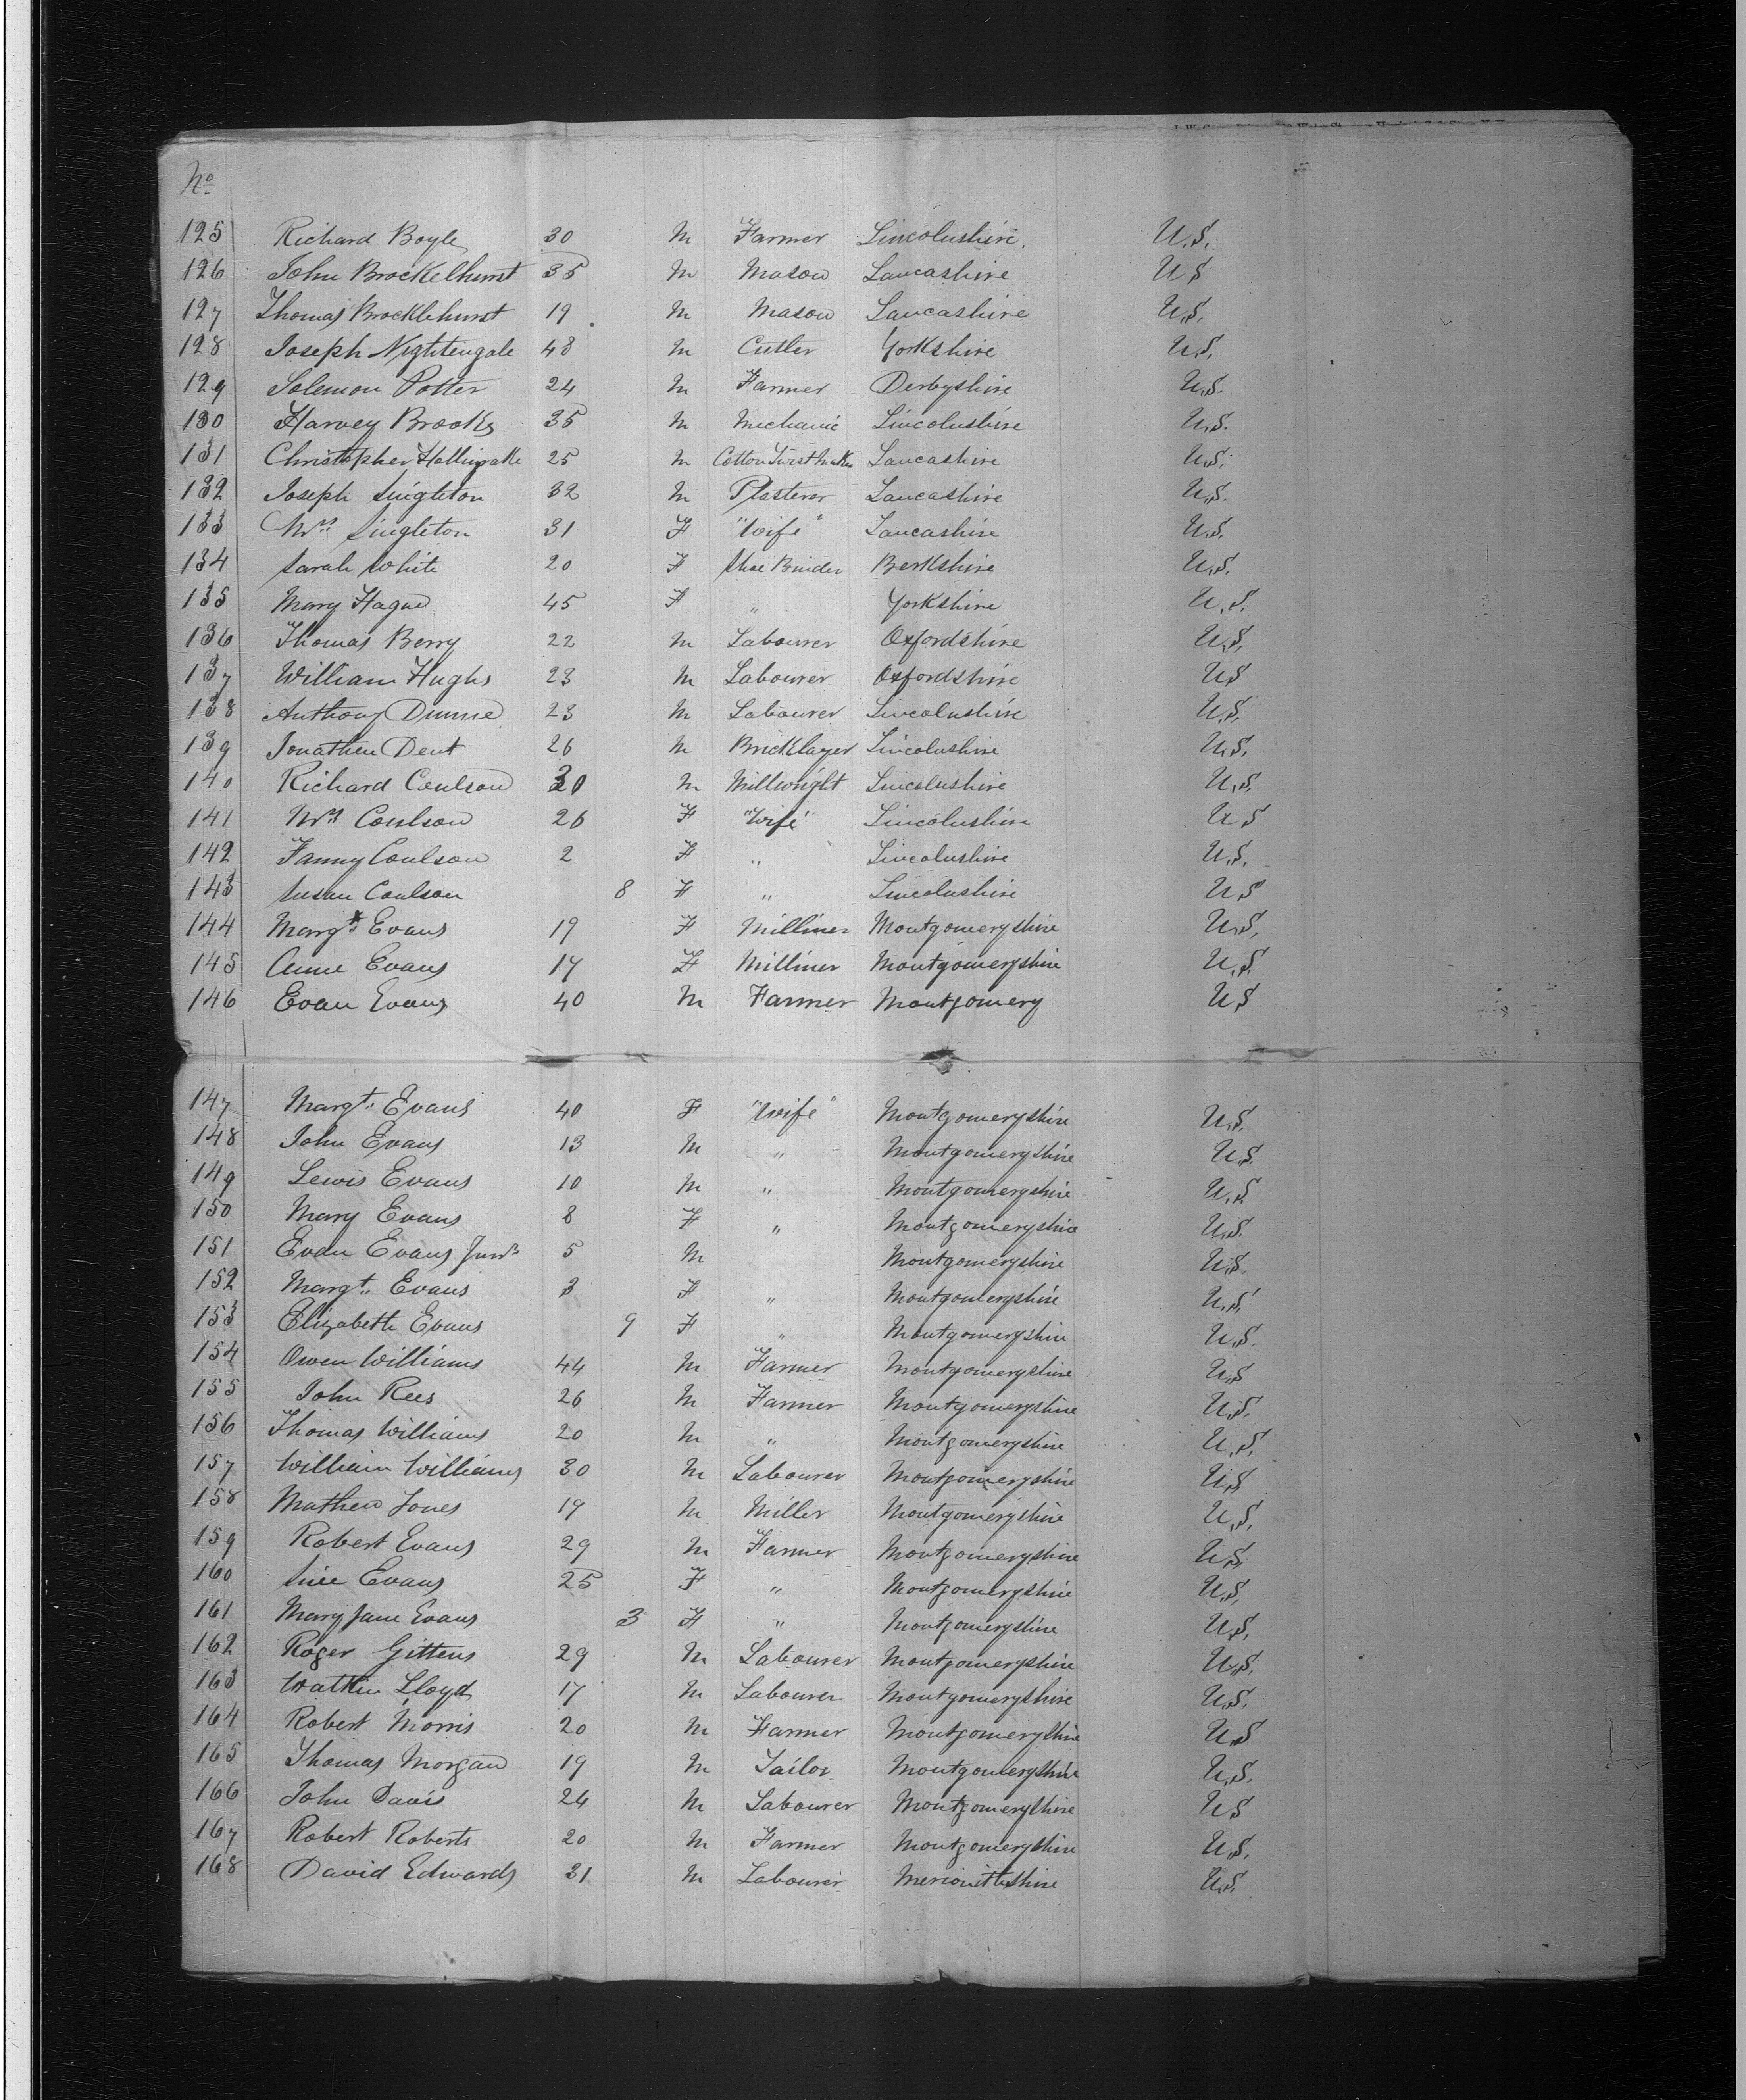 No
125 Richard Boyle 30 M Farmer Lincolnshire. U.S.
126 John Brockelhurst 35 M Mason Lancashire U S
127 Thomas Brocklehurst 19 M Mason Lancashire U.S.
128 Joseph Nightengale 48 M Cutler Yorkshire U.S.
129 Solemon Potter 24 M Farmer Derbyshire U.S.
130 Harvey Brooks 35 M Mechanic Lincolnshire U.S.
131 Christopher 25 M Cotton Twist Maker Lancashire U.S.
132 Joseph Singleton 32 M Plasterer Lancashire U.S.
133 Mrs Singleton 31 F "Wife" Lancashire U.S.
134 Sarah White 20 F Shoe Berkshire U.S.
135 Mary Hague 45 F " Yorkshire U.S.
136 Thomas Berry 22 M Labourer Oxfordshire U.S.
137 William Hughs 23 M Labourer Oxfordshire U.S
138 Anthony Dunne 23 M Labourer Lincolnshire U.S.
139 Jonathen Dent 26 M Bricklayer Lincolnshire U.S.
140 Richard Coulson 30 M Millwright Lincolnshire U.S.
141 Mrs Coulson 26 F "Wife" Lincolnshire U S
142 Fanny Coulson 2 F " Lincolnshire U.S.
143 Susan Coulson 8 F " Lincolnshire U S
144 Margt. Evans 19 F Milliner Montgomeryshire U.S.
145 Anne Evans 17 F Milliner Montgomeryshire U.S.
146 Evan Evans 40 M Farmer Montgomery U.S
147 Margt. Evans 40 F "Wife" Montgomeryshire U.S.
148 John Evans 13 M " Montgomeryshire U.S.
149 Lewis Evans 10 M " Montgomeryshire U.S.
150 Mary Evans 8 F " Montgomeryshire U.S.
151 Evan Evans Junr 5 M Montgomeryshire U.S.
152 Margt. Evans 3 F " Montgomeryshire U.S.
153 Elizabeth Evans 9 F " Montgomeryshire U.S.
154 Owen Williams 44 M Farmer Montgomeryshire U.S
155 John Rees 26 M Farmer Montgomeryshire U.S.
156 Thomas Williams 20 M " Montgomeryshire U.S.
157 William Williams 30 M Labourer Montgomeryshire U.S
158 Mathew Jones 19 M Miller Montgomeryshire U.S.
159 Robert Evans 29 M Farmer Montgomeryshire U.S.
160 Evans 25 F " Montgomeryshire U.S.
161 Mary Jane Evans 3 F " Montgomeryshire U.S.
162 Roger Gittens 29 M Labourer Montgomeryshire U.S.
163 Watkin Lloyd 17 M Labourer Montgomeryshire U.S.
164 Robert Morris 20 M Farmer Montgomeryshire U.S
165 Thomas Morgan 19 M Tailor Montgomeryshire U.S.
166 John Davis 24 M Labourer Montgomeryshire U S
167 Robert Roberts 20 M Farmer Montgomeryshire U.S.
168 David Edwards 31 M Labourer Merionithshire U.S.